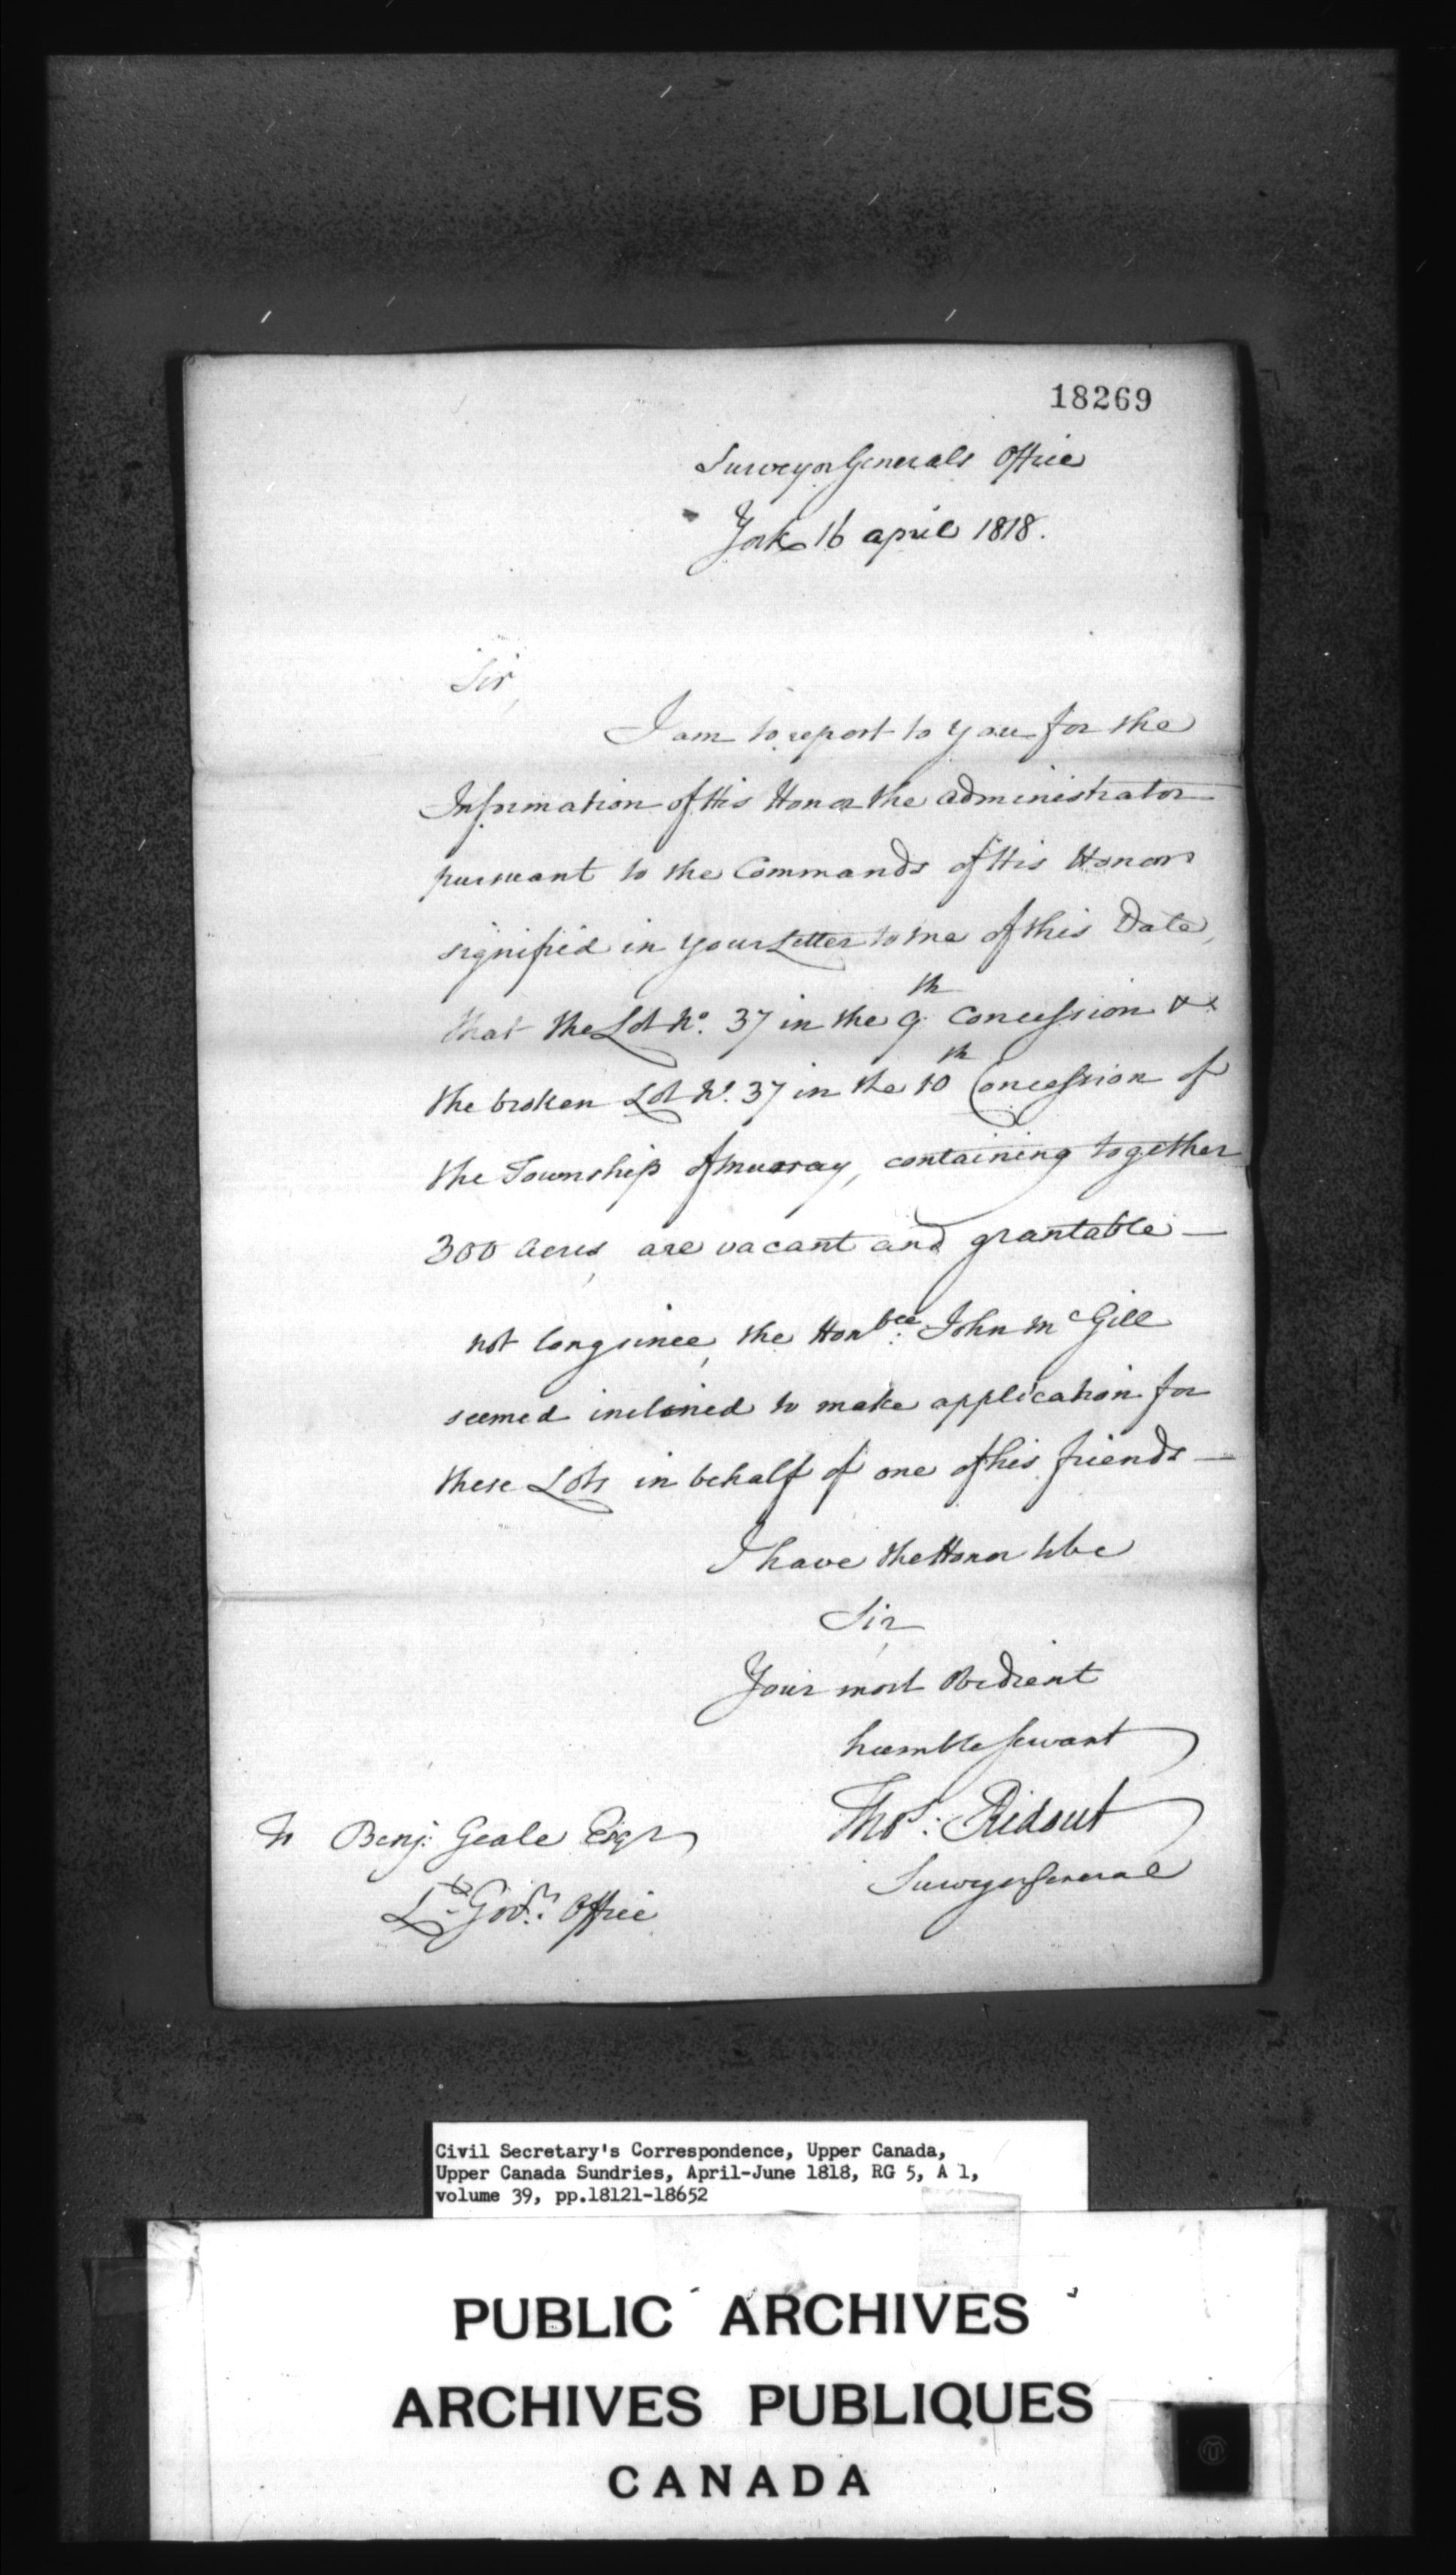 18269
Surveyor Generals Office
York 16 april 1818.
Sir,
I am to report to you for the
Information of His Honor the administrator
pursuant to the Commands of His Honor
signified in your Letter to me of this Date,
that the Lot No. 37 in the 9th Concession &
the broken Lot No. 37 in the 10th Concession of
the Township of murray, containing together
300 acres, are vacant and grantable —
not long since, the Honble: John McGill
seemed inclined to make application for
these Lots in behalf of one of his friends —
I have the Honor to be
Sir,
Your most Obedient
humble servant
Thos: Ridout
Surveyor General
To Benj: Geale Esqr
Lt. Govrs. Office
Civil Secretary's Correspondence, Upper Canada,
Upper Canada Sundries, April-June 1818, RG 5, A 1,
volume 39, pp.18121-18652
PUBLIC ARCHIVES
ARCHIVES PUBLIQUES
CANADA